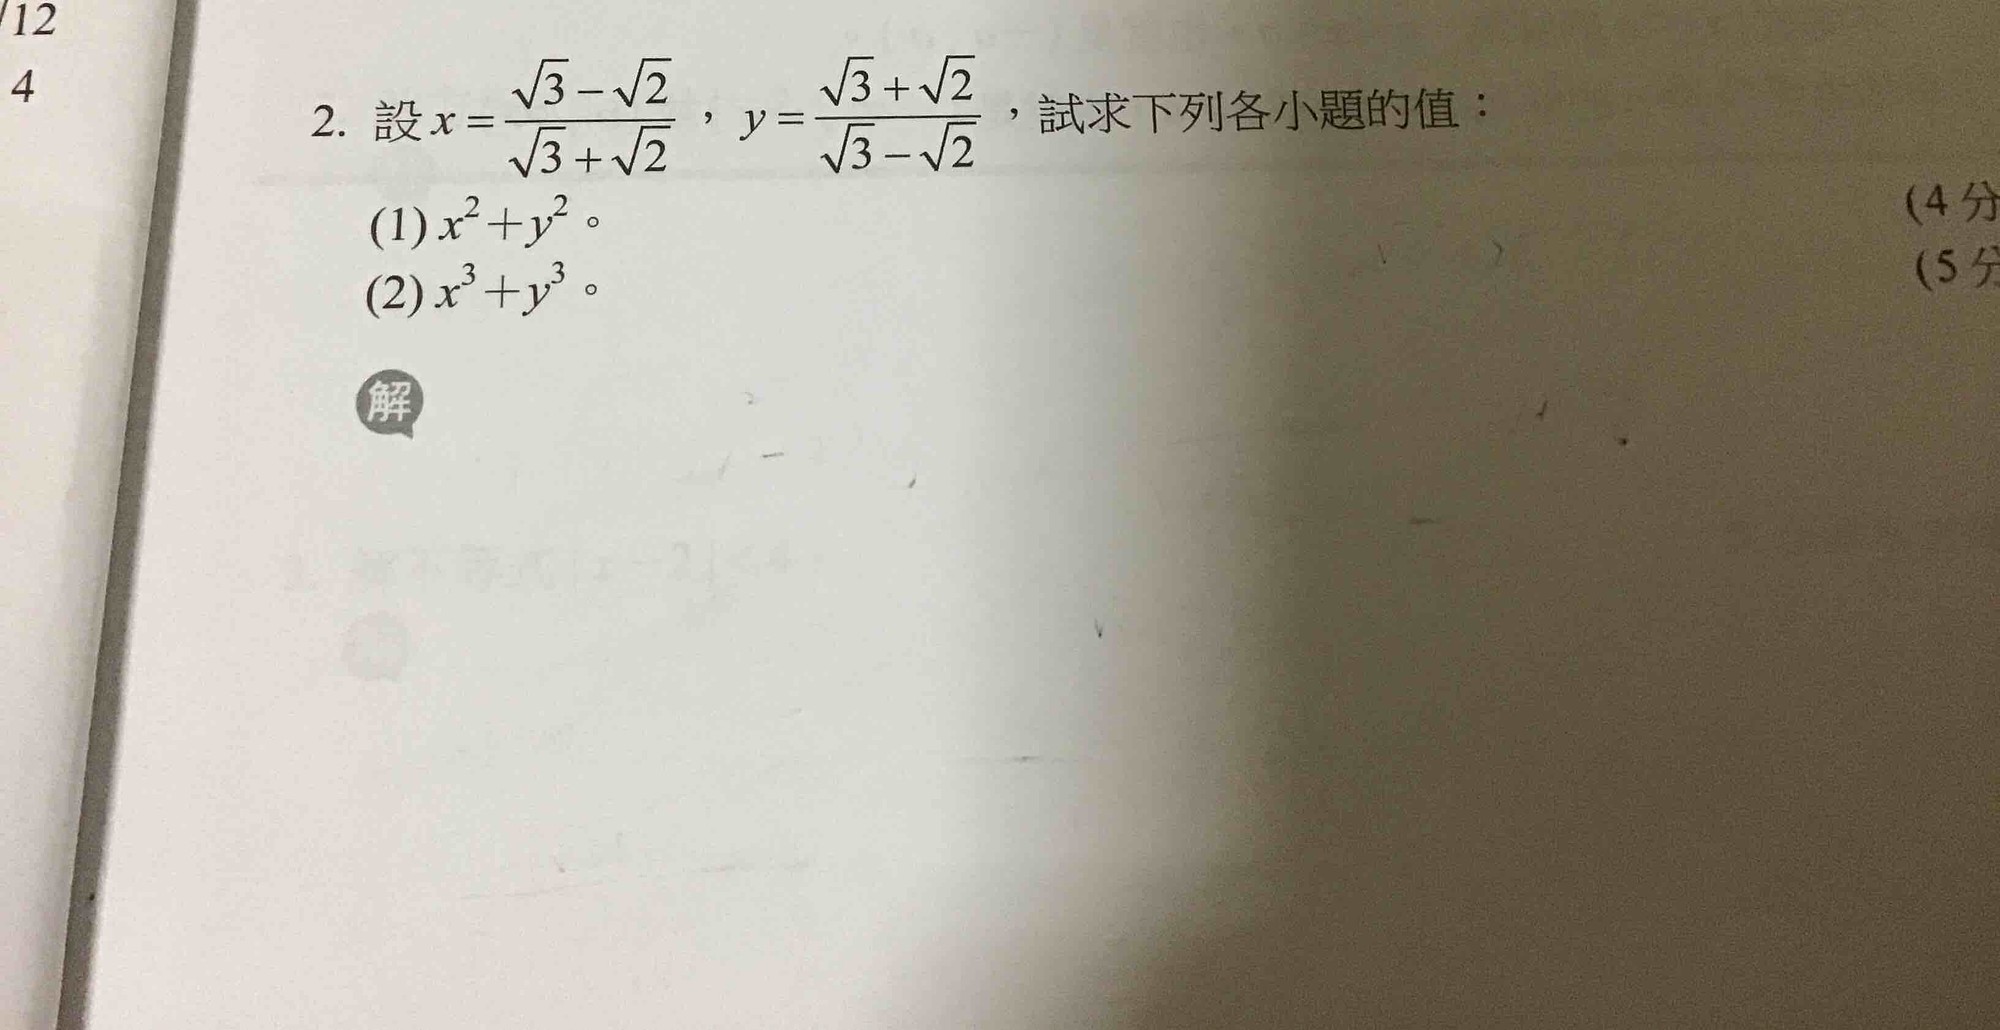 √12
4
2. 設 x = (√3 − √2)/(√3 + √2) ， y = (√3 + √2)/(√3 − √2) ，試求下列各小題的值：
(1) x² + y² 。 (4 分
(2) x³ + y³ 。 (5 分
解